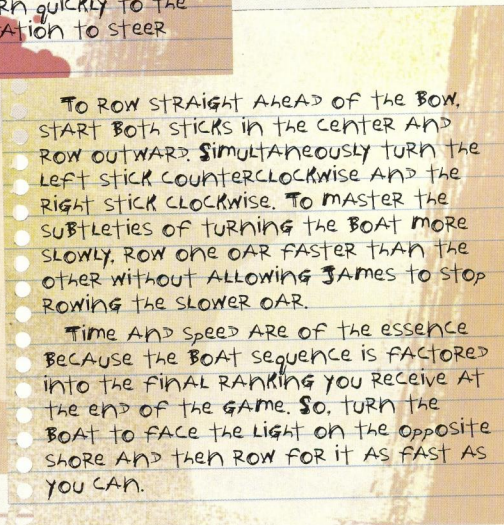 rn quickly to the
ation to steer
To row straight ahead of the bow,
start both sticks in the center and
row outward. Simultaneously turn the
left stick counterclockwise and the
right stick clockwise. To master the
subtleties of turning the boat more
slowly, row one oar faster than the
other without allowing James to stop
rowing the slower oar.
Time and speed are of the essence
because the boat sequence is factored
into the final ranking you receive at
the end of the game. So, turn the
boat to face the light on the opposite
shore and then row for it as fast as
you can.